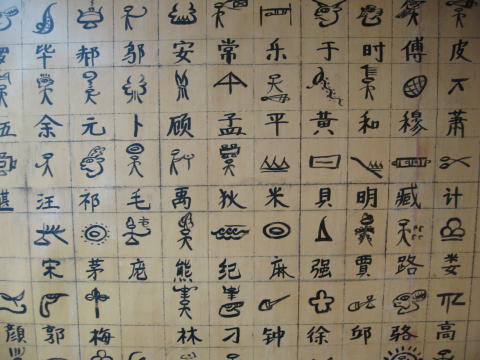 毕郝邬安常乐于时傅皮
余元卜顾孟平黃和穆萧
汪祁毛禹狄米貝明臧计
宋茅熊纪麻强賈路娄
顔郭梅林刁钟徐邱骆高